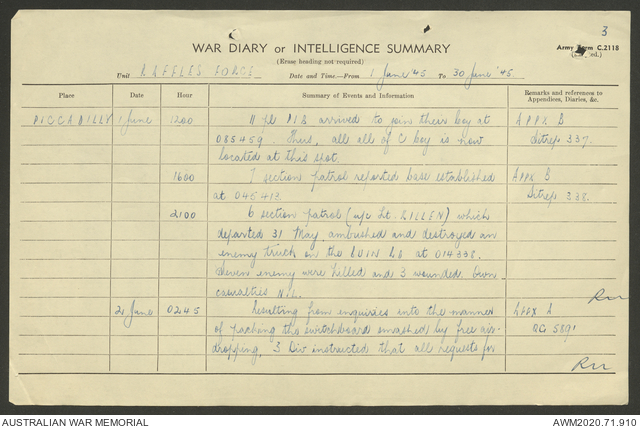 3
WAR DIARY or INTELLIGENCE SUMMARY
Army Form C.2118
(Erase heading not required)
Unit RAFFLES FORCE Date and Time—From 1 June '45 To 30 June '45
Place Date Hour Summary of Events and Information Remarks and references to Appendices, Diaries, &c.
PICCADILLY 1 June 1200 11 pl PIB arrived to join their coy at APPX B
085459. Thus, all all of C coy is now Sitrep 337.
located at this spot.
1600 7 section patrol reported base established APPX B
at 045413. Sitrep 338.
2100 6 section patrol (u/c Lt. ) which
departed 31 May, ambushed and destroyed an
enemy truck on the BUIN RD at 014338.
Seven enemy were killed and 3 wounded. Own
casualties NIL.
2 June 0245 Resulting from enquiries into the manner APPX A
of packing the switchboard smashed by free air-
dropping, 3 Div instructed that all requests for
AUSTRALIAN WAR MEMORIAL AWM2020.71.910